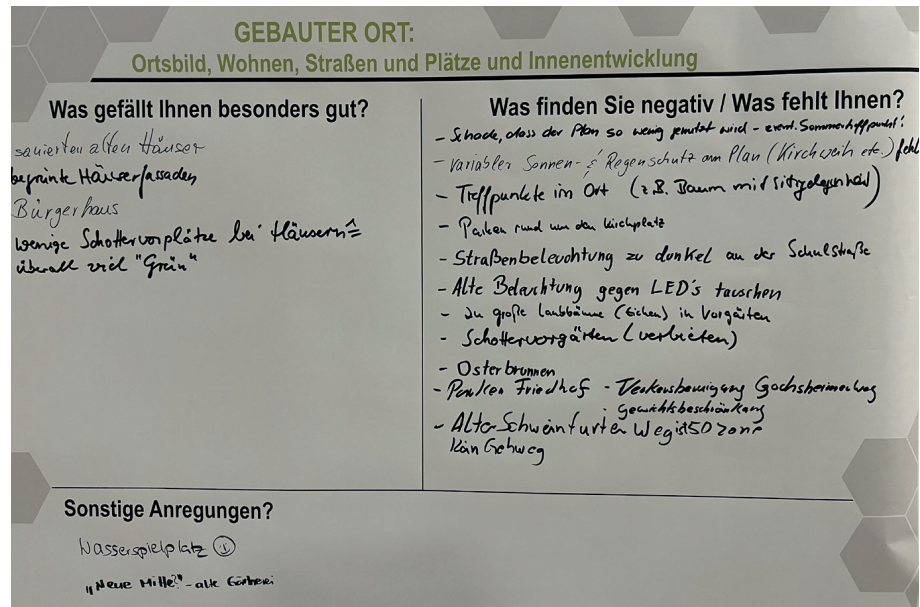 GEBAUTER ORT:
Ortsbild, Wohnen, Straßen und Plätze und Innenentwicklung
Was gefällt Ihnen besonders gut?
sanierten alten Häuser
begrünte Häuserfassaden
Bürgerhaus
wenige Schottervorplätze bei Häusern ≙
überall viel "Grün"
Was finden Sie negativ / Was fehlt Ihnen?
- Schade, dass der Plan so wenig genutzt wird - event. Sommertreffpunkt!
- Variabler Sonnen- & Regenschutz am Plan (Kirchweih etc.) fehlt
- Treffpunkte im Ort (z.B. Baum mit Sitzgelegenheit)
- Parken rund um den Kirchplatz
- Straßenbeleuchtung zu dunkel an der Schulstraße
- Alte Beleuchtung gegen LED's tauschen
- zu große Laubbäume (Eichen) in Vorgärten
- Schottervorgärten (verbieten)
- Osterbrunnen
- Parken Friedhof - Gochsheimerweg
- Gewichtsbeschränkung
- Alter Schweinfurter Weg ist 50 zone
Kein Gehweg
Sonstige Anregungen?
Wasserspielplatz
"Neue Mitte?" - alte Gärtnerei